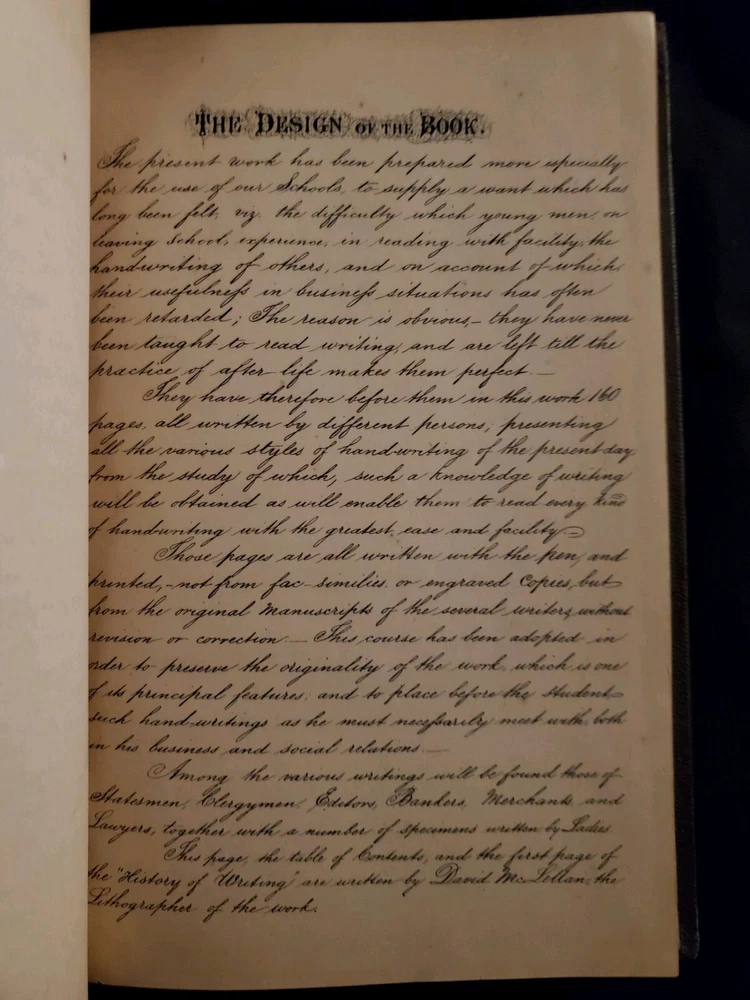 THE DESIGN OF THE BOOK.
The present work has been prepared more especially
for the use of our Schools, to supply a want which has
long been felt, viz. the difficulty which young men, on
leaving School, experience, in reading with facility, the
handwriting of others, and on account of which,
their usefulness in business situations has often
been retarded; The reason is obvious,– they have never
been taught to read writing, and are left till the
practice of after-life makes them perfect.—
They have therefore before them in this work 160
pages, all written by different persons; presenting
all the various styles of hand-writing of the present day,
from the study of which, such a knowledge of writing
will be obtained as will enable them to read every kind
of handwriting with the greatest ease and facility.—
Those pages are all written with the pen, and
printed,–not from fac-similies, or engraved Copies, but
from the original Manuscripts of the several writers, without
revision or correction.— This course has been adopted in
order to preserve the originality of the work, which is one
of its principal features; and to place before the student
such hand-writings as he must necessarily meet with, both
in his business and social relations.—
Among the various writings will be found those of
Statesmen, Clergymen, Editors, Bankers, Merchants and
Lawyers, together with a number of specimens written by Ladies.
This page, the table of Contents, and the first page of
the "History of Writing" are written by David McLellan, the
Lithographer of the work.